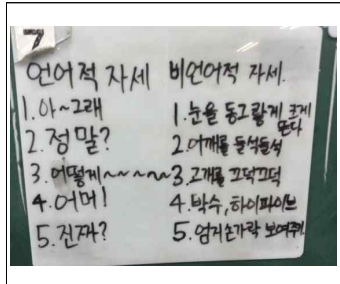 7
언어적 자세
1. 아~그래
2. 정말?
3. 어떻게~~~~
4. 어머!
5. 진짜?
비언어적 자세.
1. 눈을 동그랗게 크게 뜬다
2. 어깨를 들석들석
3. 고개를 끄덕끄덕
4. 박수, 하이파이브
5. 엄지손가락 보여주기.